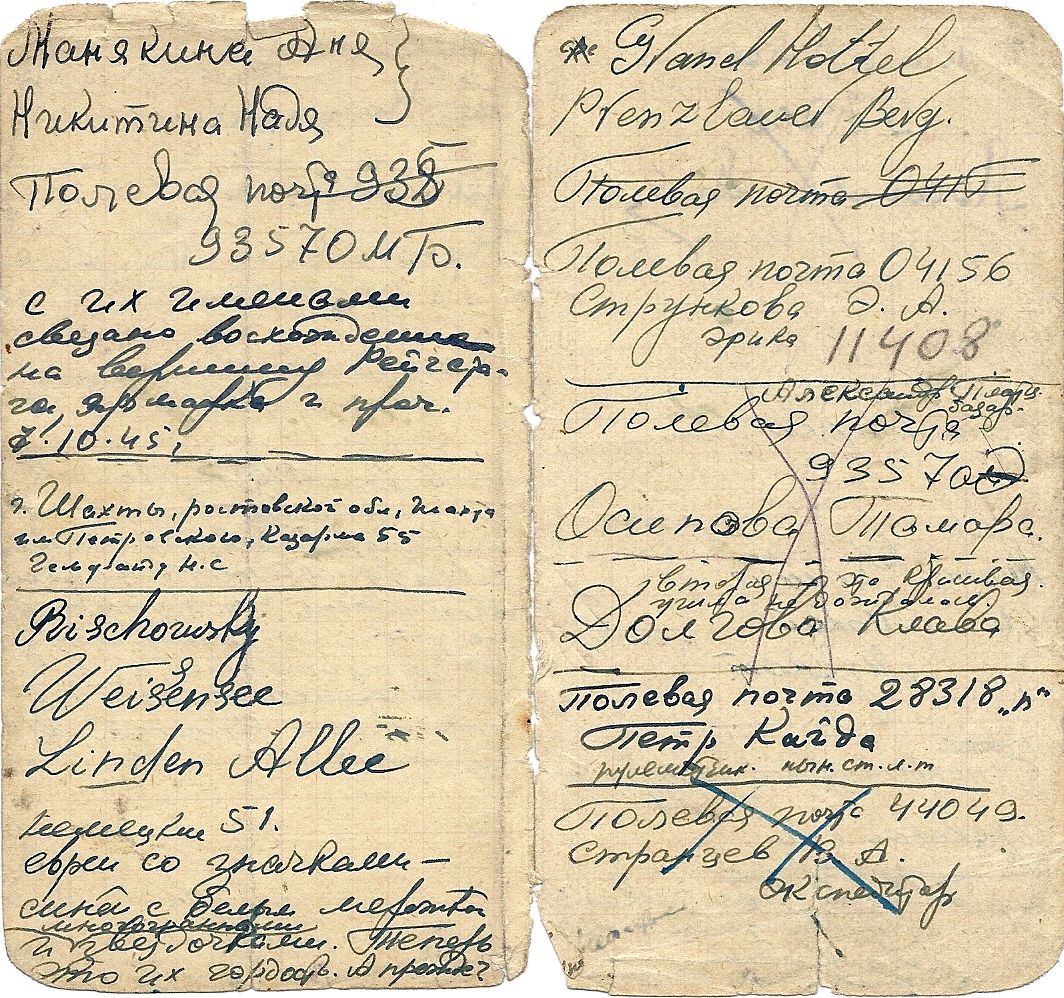 Манякина Аня
Никитина Надя
Полевая почта 935
93570 М Тр.
с их именами
связано восхождение
на вершину Рейхста-
га, ярмарка и проч.
7.10.45.
г. Шахты, ростовской обл,
им Петровского, Казарма 55
Н.С
Rischowsky
Weissensee
Linden Allee
немецкие 51.
евреи со значками –
сина с белым
многогранными
и звездочками. Теперь
это их гордость. А прежде?
Grand Hotzel
Prenzlauer Berg.
Полевая почта 041
Полевая почта 04156
Стрункова Э. А.
Эрика 11408
Александр Плац.
базар.
Полевая почта
93570
Осипова Тамара.
вторая – это красивая.
Долгова Клава
Полевая почта 28318 „п"
Петр Кайда
рулеметчик. нын. ст. л-т
Полевая почта 44049.
Странцев В А.
Экспедитор